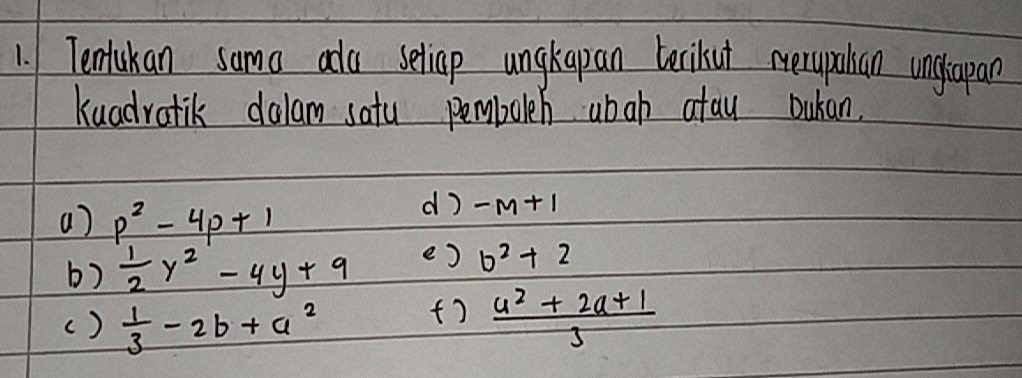 1. Tentukan sama ada setiap ungkapan berikut merupakan ungkapan
kuadratik dalam satu pemboleh ubah atau bukan.
a) p² - 4p + 1
d) -m + 1
b) 1/2 y² - 4y + 9
e) b² + 2
c) 1/3 - 2b + a²
f) (a² + 2a + 1)/3